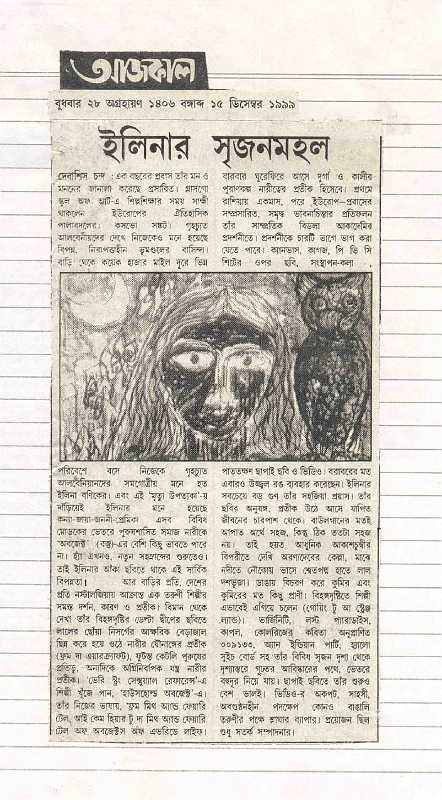 আজকাল
বুধবার ২৮ অগ্রহায়ণ ১৪০৬ বঙ্গাব্দ ১৫ ডিসেম্বর ১৯৯৯
ইলিনার সৃজনমহল
দেবাশিস চন্দ : এক বছরের প্রবাস তাঁর মন ও
মননের জানালা করেছে প্রসারিত। গ্লাসগো
স্কুল অফ আর্ট-এ শিল্পশিক্ষার সময় সাক্ষী
থাকলেন ইউরোপের ঐতিহাসিক
পালাবদলের। কসভো সঙ্কট। গৃহচ্যুত
আলবেনীয়দের দেখে নিজেকেও মনে হয়েছে
বিপন্ন, নিরাপত্তাহীন ভূমণ্ডলের বাসিন্দা।
বাড়ি থেকে কয়েক হাজার মাইল দূরে ভিন্ন
পরিবেশে বসে নিজেকে গৃহচ্যুত
আলবেনিয়ানদের সমগোত্রীয় মনে হত
ইলিনা বণিকের। এবং এই 'মৃত্যু উপত্যকা'-য়
দাঁড়িয়েই ইলিনার মনে হয়েছে
কন্যা-জায়া-জননী-প্রেমিকা এসব বিবিধ
মোড়কের ভেতরে পুরুষশাসিত সমাজ নারীকে
'অবজেক্ট' (বস্তু)-এর বেশি কিছু ভাবতে পারে
না। হ্যাঁ এখনও, নতুন সহস্রাব্দের শুরুতেও।
তাই ইলিনার আঁকা ছবিতে থাকে এই সার্বিক
বিপন্নতা। আর বাড়ির প্রতি, দেশের
প্রতি নস্টালজিয়ায় আক্রান্ত এক তরুণী শিল্পীর
সমস্ত দর্শন, কারণ ও প্রতীক। বিমান থেকে
দেখা তাঁর বিহঙ্গদৃষ্টির ডেল্টা দ্বীপের ছবিতে
লালের ছোঁয়া নিসর্গের আক্ষরিক বেড়াজাল
ছিন্ন করে হয়ে ওঠে নারীর যৌনাঙ্গের প্রতীক
(ফ্রম দা এয়ারক্রাফট), ফুটন্ত কেটলি পুরুষের
প্রতিভূ, অন্যদিকে অগ্নিনির্বাপক যন্ত্র নারীর
প্রতীক। 'ভেরি স্ট্রং সেক্সুয়াল রেফারেন্স'-এ
শিল্পী খুঁজে পান, 'হাউসহোল্ড অবজেক্ট'-এ।
তাঁর নিজের ভাষায়, 'ফ্রম মিথ অ্যান্ড ফেয়ারি
টেল, আই কেম হিয়ার টু দা মিথ অ্যান্ড ফেয়ারি
টেল অফ অবজেক্টস অফ এভরিডে লাইফ।
বারবার ঘুরেফিরে আসে দুর্গা ও কালীর
পুরাণকল্প নারীত্বের প্রতীক হিসেবে। প্রথমে
রাশিয়ায় একমাস, পরে ইউরোপ—প্রবাসের
সম্প্রসারিত, সমৃদ্ধ ভাবনাচিন্তার প্রতিফলন
তাঁর সাম্প্রতিক বিড়লা আকাদেমির
প্রদর্শনীতে। প্রদর্শনীকে চারটি ভাগে ভাগ করা
যেতে পারে। ক্যানভাস, কাগজ, পি ভি সি
শিটের ওপর ছবি, সংস্থাপন-কলা
পাততক্ষণ ছাপাই ছবি ও ভিডিও। বরাবরের মত
এবারও উজ্জ্বল রঙ ব্যবহার করেছেন। ইলিনার
সবচেয়ে বড় গুণ তাঁর সহজিয়া প্রয়াস। তাঁর
ছবির অনুষঙ্গ, প্রতীক উঠে আসে যাপিত
জীবনের চারপাশ থেকে। বাউলগানের মতই
আপাত অর্থে সহজ, কিন্তু ঠিক ততটা সহজ
নয়। তাই হয়ত আধুনিক আকাশচুম্বীর
বিপরীতে দেখি অরণ্যদেবের কেল্লা, মাঝে
নদীতে নৌকোয় ভাসে শ্বেতপদ্ম হাতে লাল
দশভূজা। ডাঙায় বিচরণ করে কুমির এবং
কুমিরের মত কিছু প্রাণী। বিহঙ্গদৃষ্টিতে শিল্পী
এভাবেই এগিয়ে চলেন (গোয়িং টু আ স্ট্রেঞ্জ
ল্যান্ড)। ভার্জিনিটি, লস্ট প্যারাডাইস,
কাপল, কোলরিজের কবিতা অনুপ্রাণিত
০০৯১৩৩, অ্যান ইন্ডিয়ান পার্টি, হ্যালো
সুইচ বোর্ড সহ তাঁর বিবিধ সৃজন দৃশ্য থেকে
দৃশ্যান্তরে গূঢ়তর আবিষ্কারের পথে, ভেতরে
বহুদূর নিয়ে যায়। ছাপাই ছবিতে তাঁর শুরুও
বেশ ভালই। ভিডিও-র অকপট, সাহসী,
অবগুণ্ঠনহীন পদক্ষেপ কোনও বাঙালি
তরুণীর পক্ষে শ্লাঘার ব্যাপার। প্রয়োজন ছিল
শুধু সতর্ক সম্পাদনার।